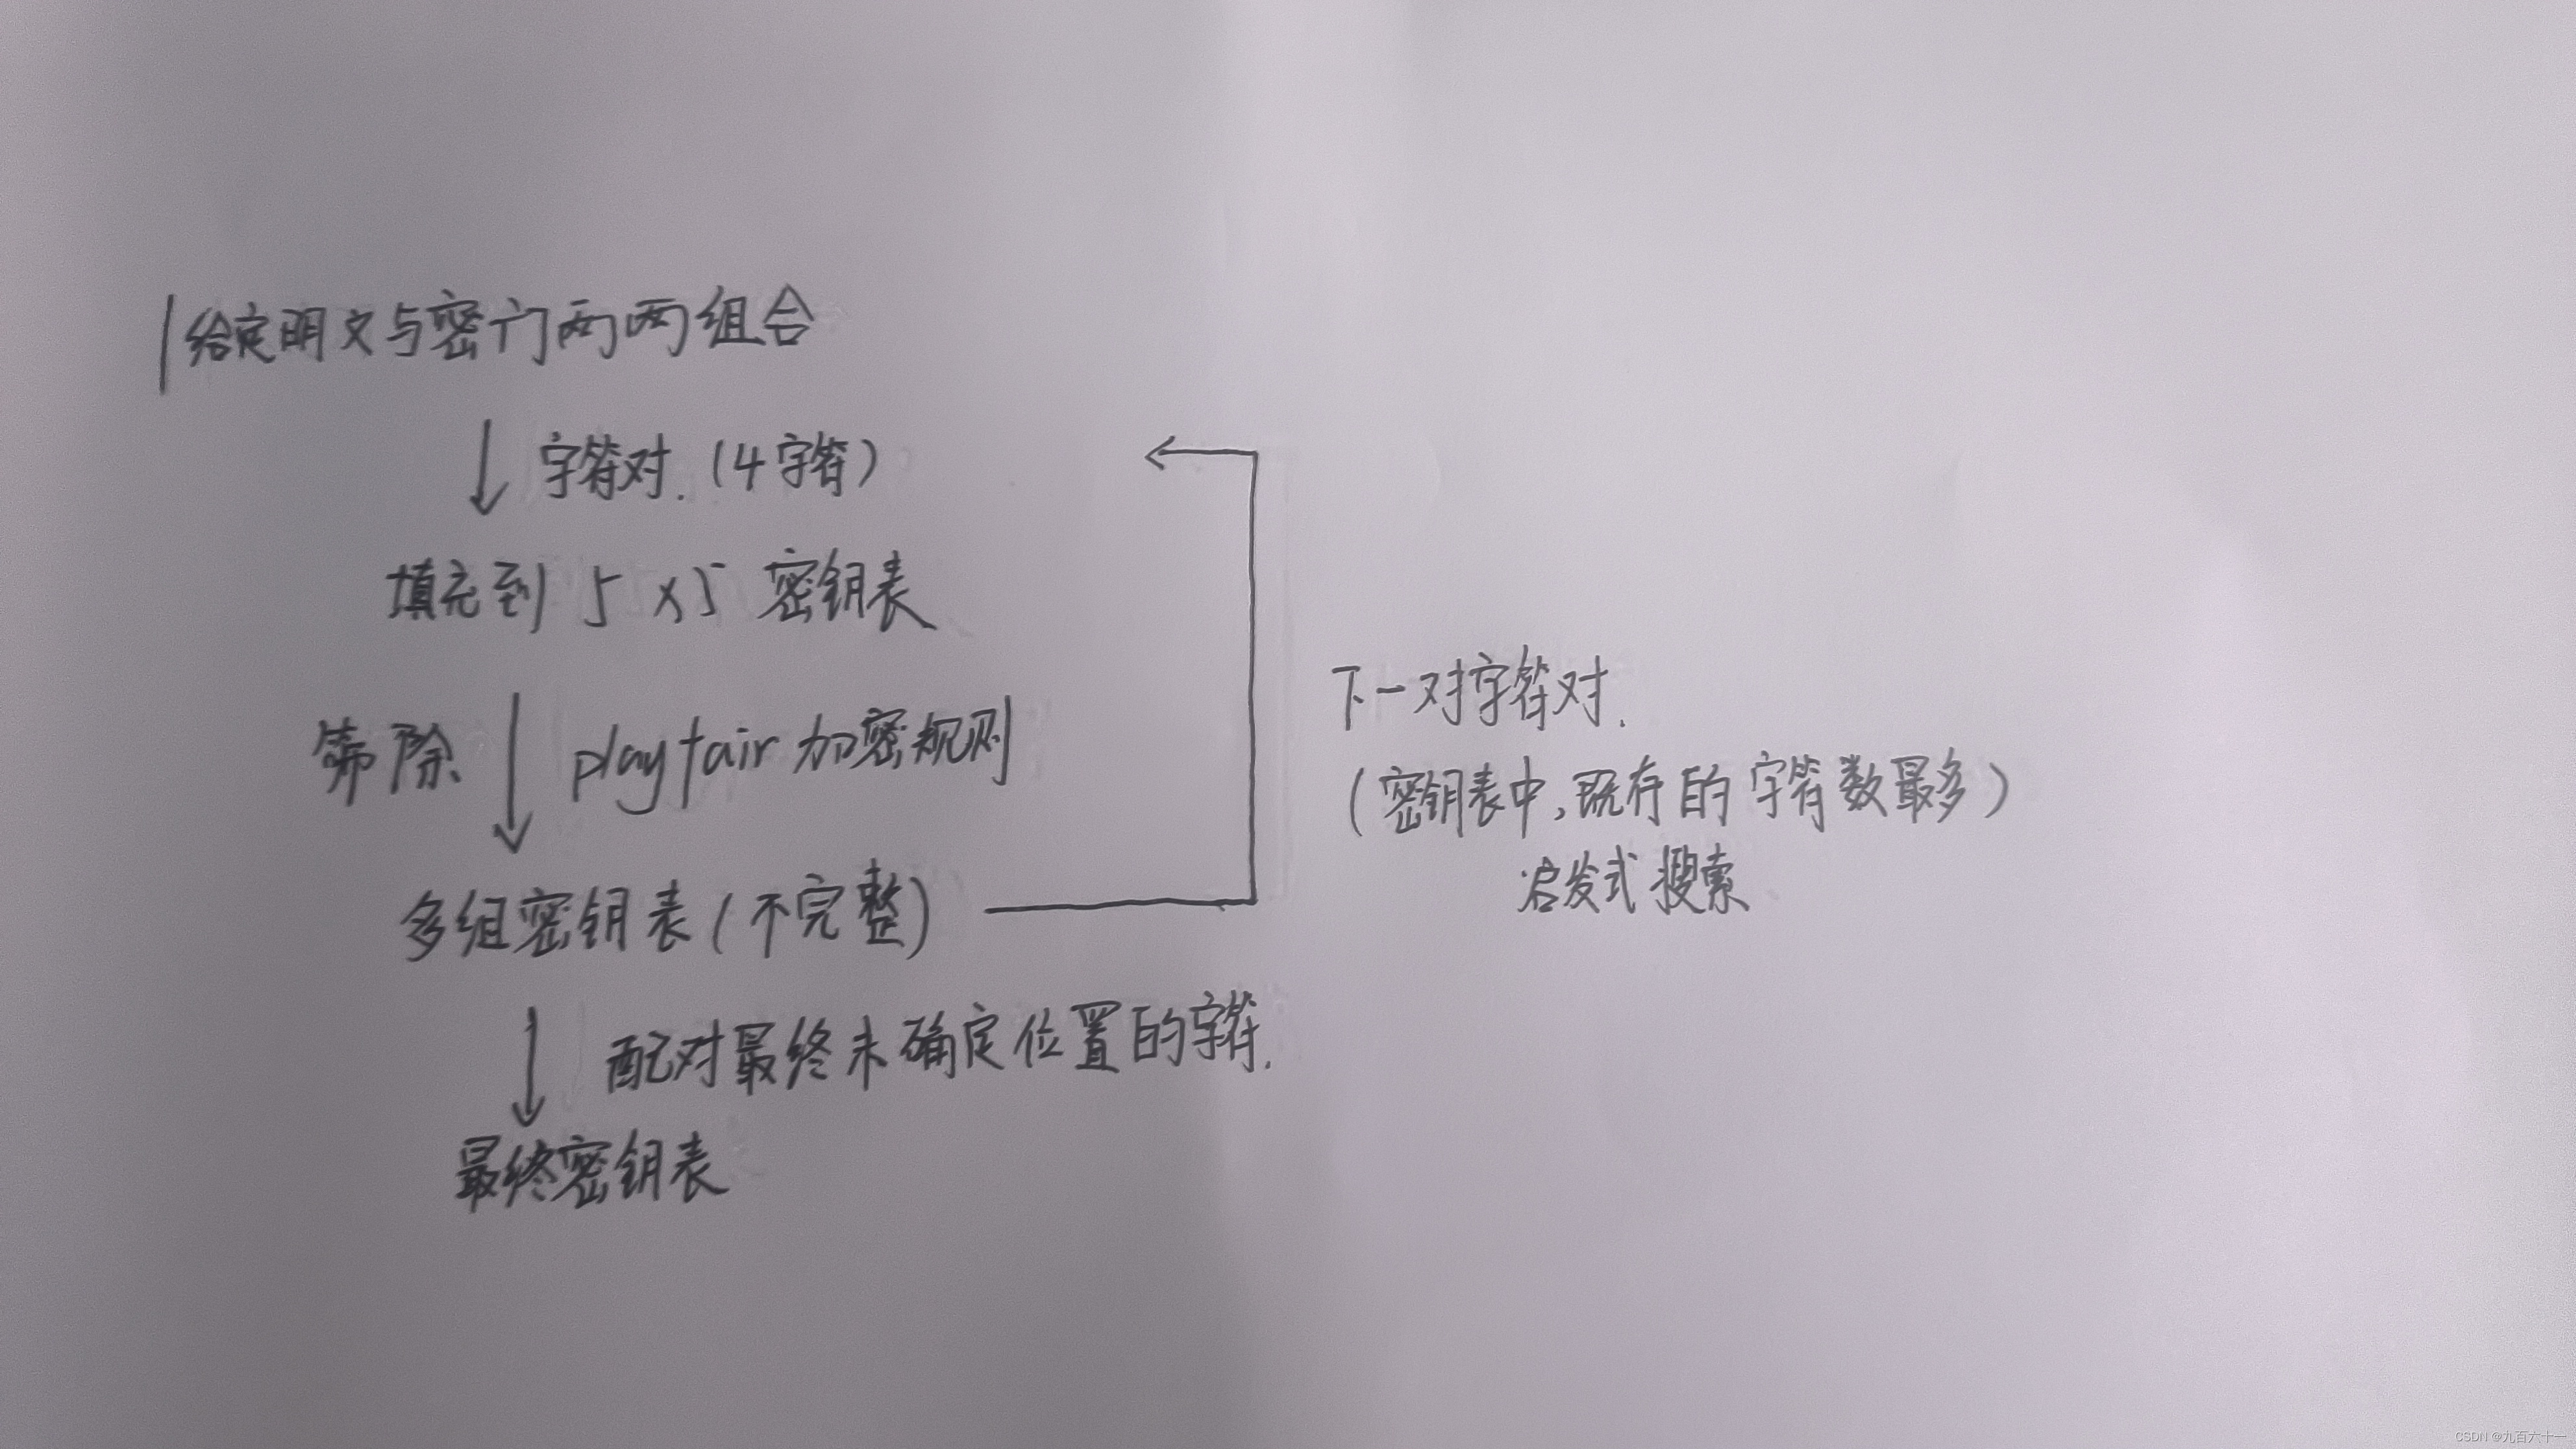 给定明文与密门两两组合
字符对.(4字符)
填充到 5×5 密钥表
筛除 playfair 加密规则
多组密钥表(不完整)
下一对字符对.
(密钥表中,既存的字符数最多)
启发式搜索
配对最终未确定位置的字符.
最终密钥表
CSDN @九百六十一